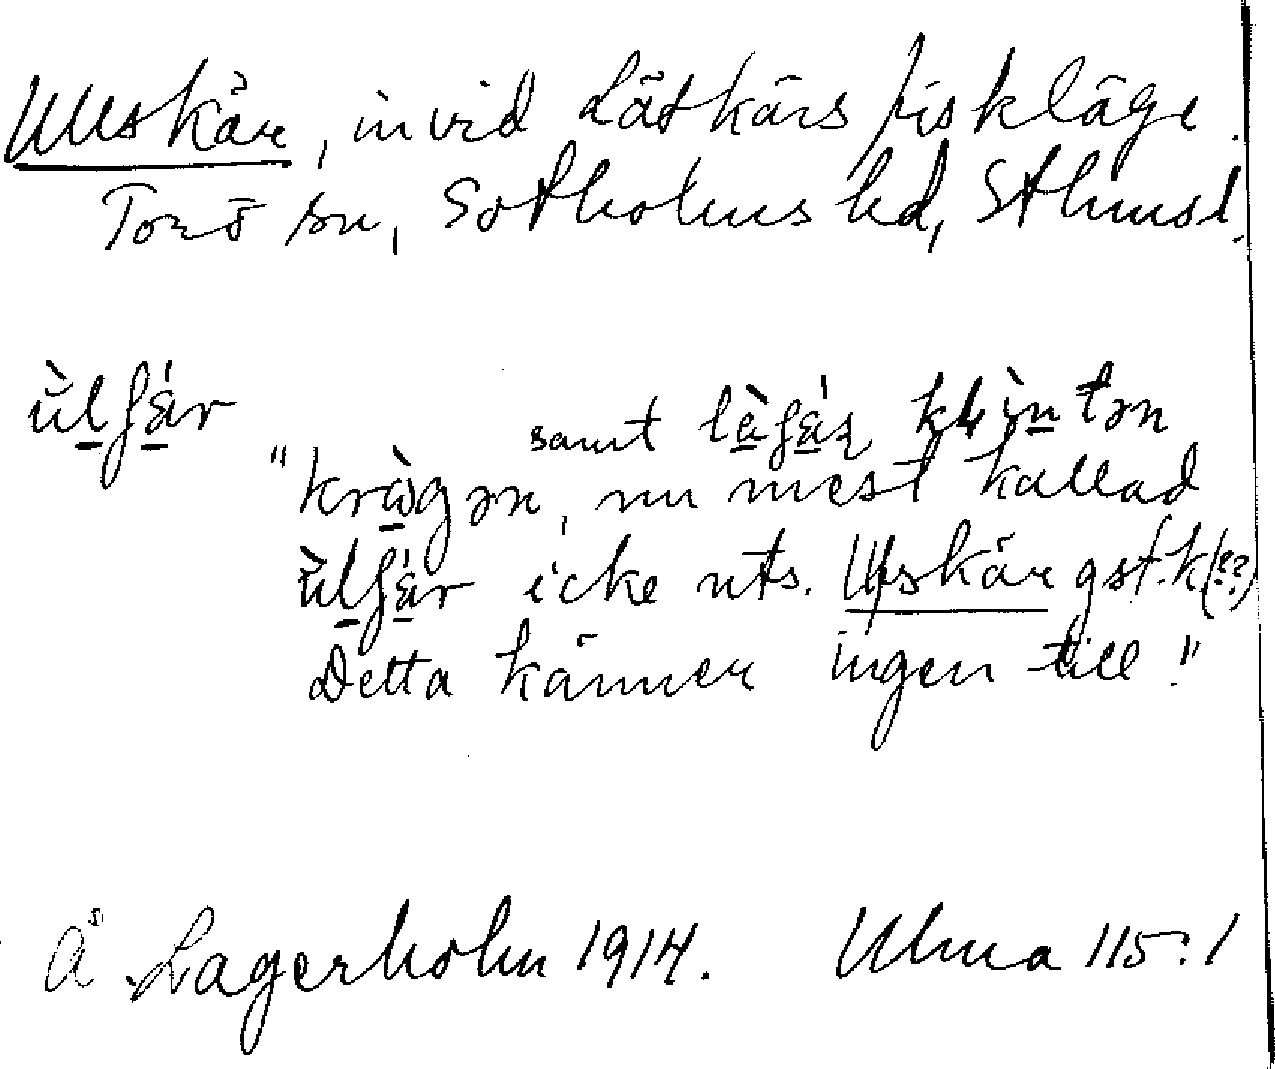 Ullskär, invid Låtkärs fiskläge.
Torö sn, Sotholms hd, Sthmsl.
ùlʃä́r
samt klìntən
"kràgən, nu mest kallad
ùlʃä́r icke uts. Ulfskär gst.k(??)
Detta känner ingen till."
Å Lagerholm 1914. Ulma 115:1